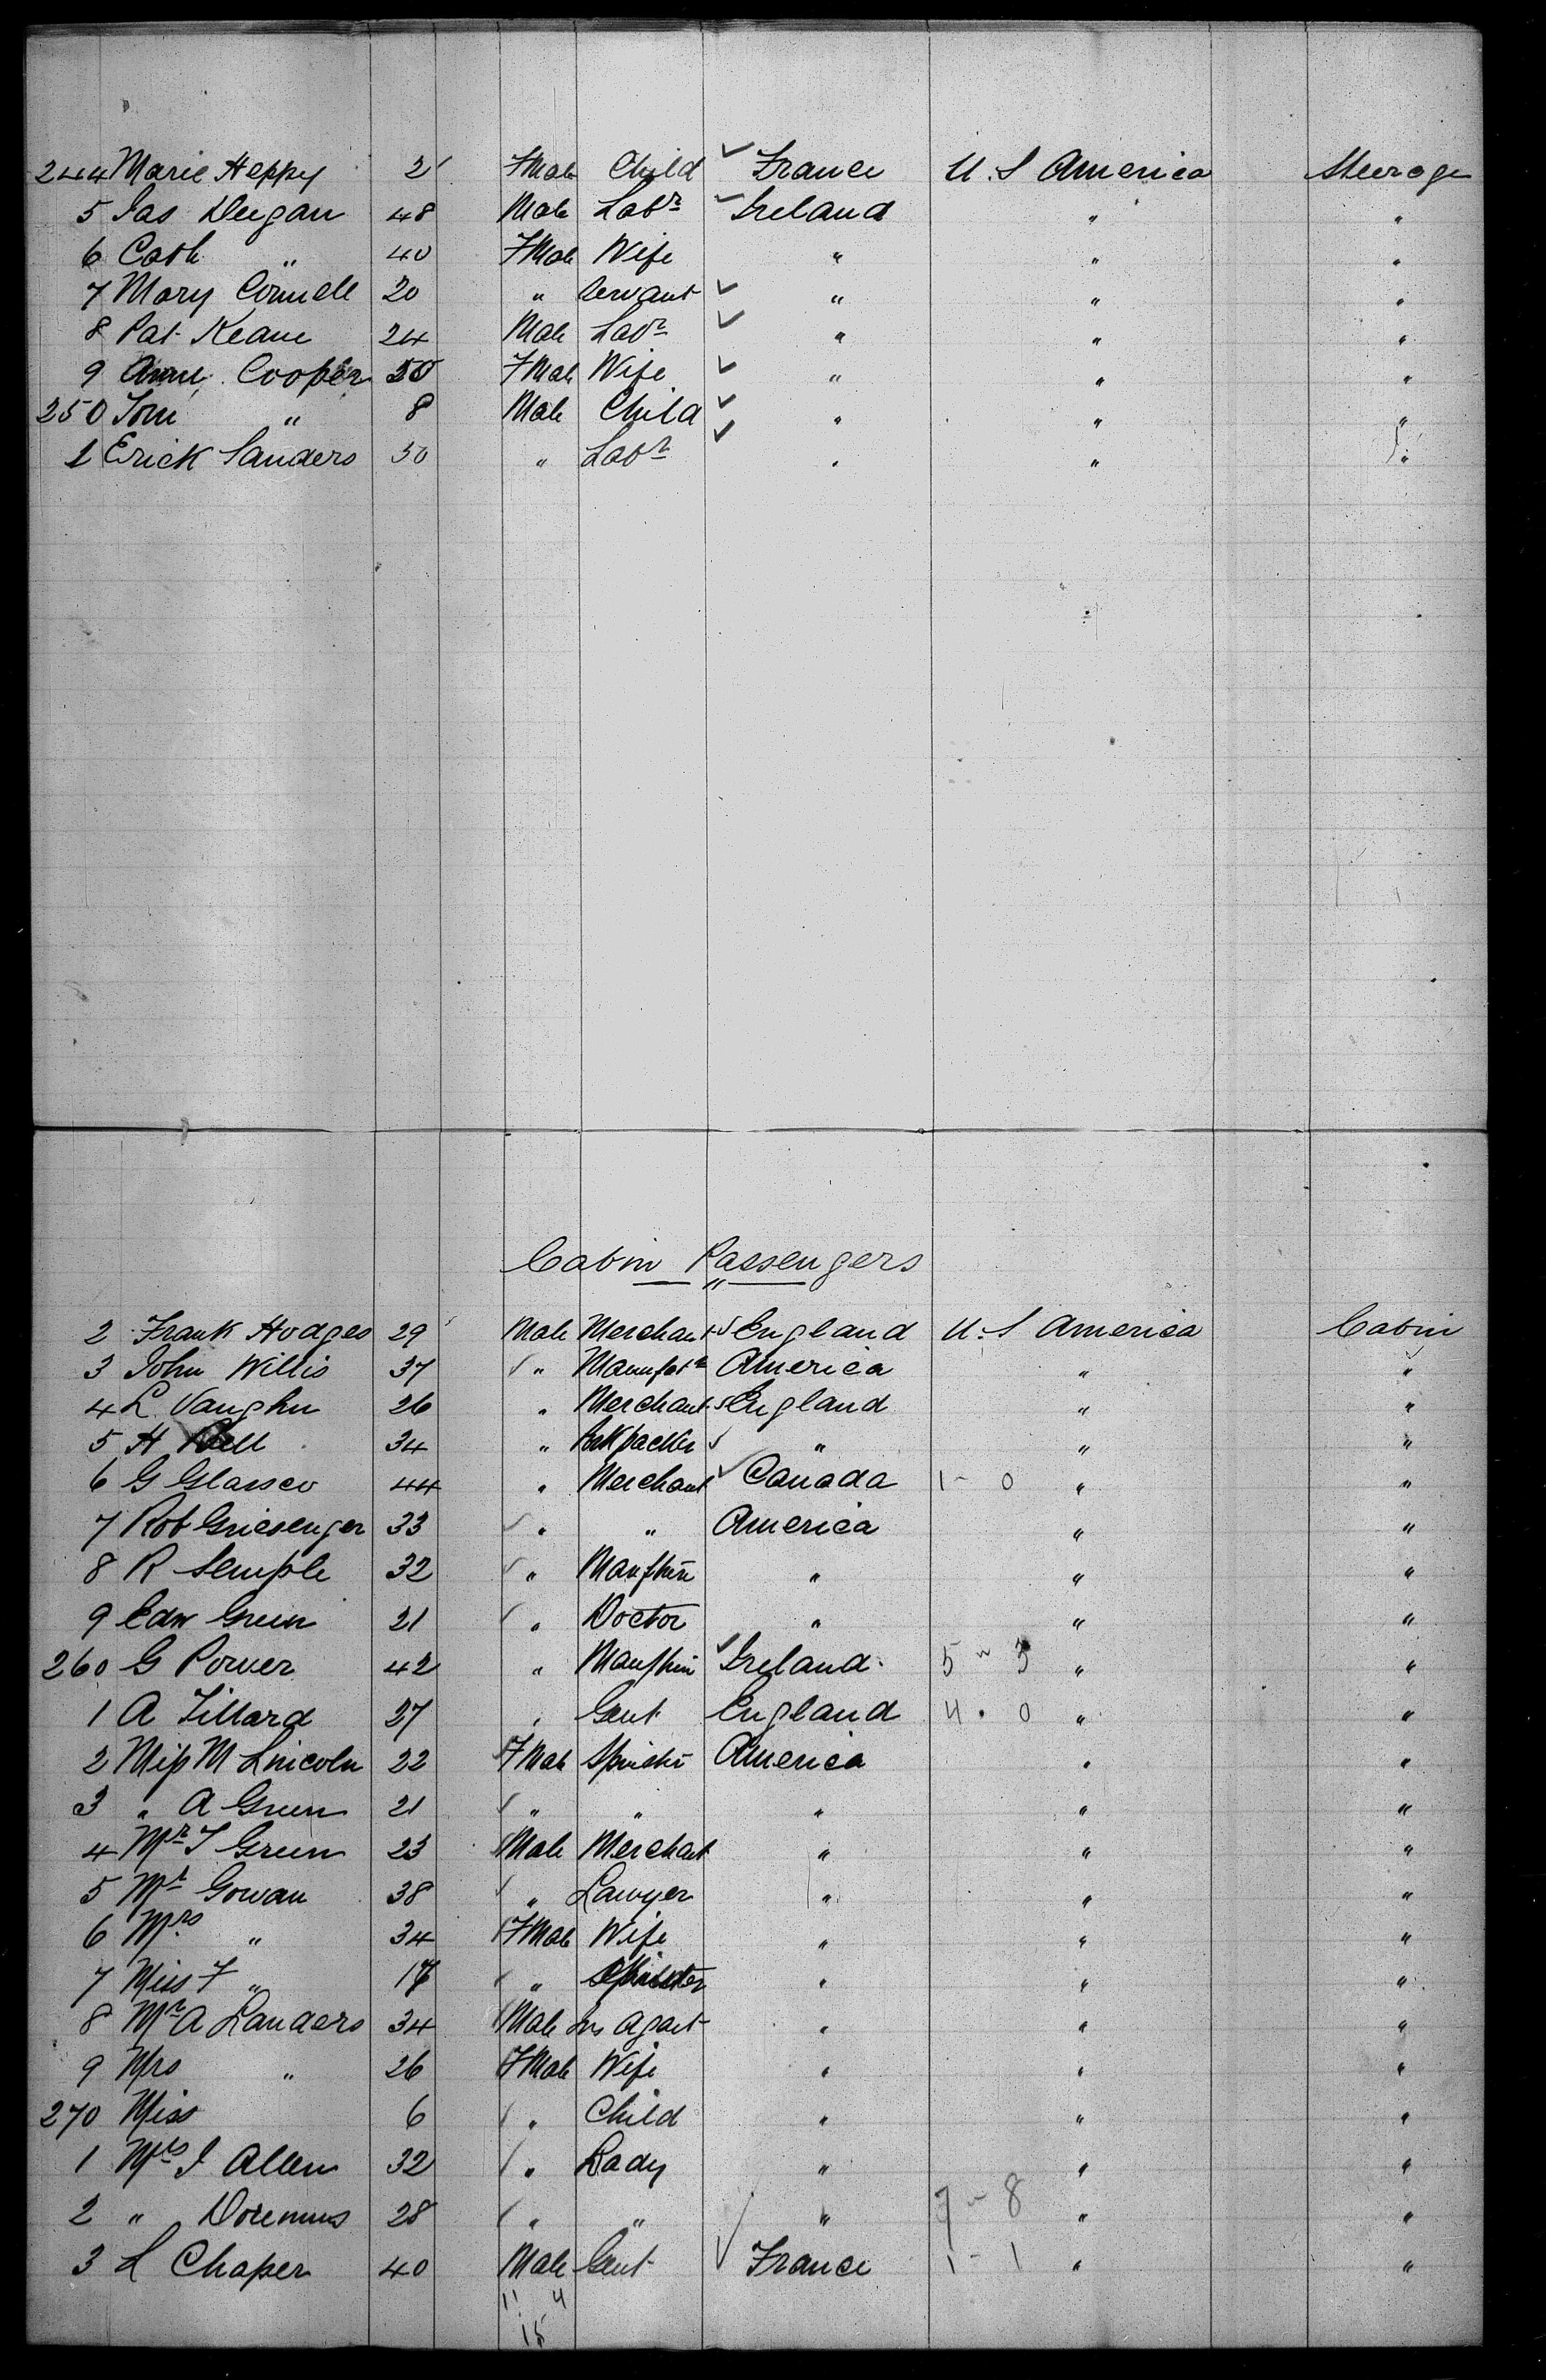 244 Marie Heppy 2 FMale Child ✓ France U.S America Steerage
5 Jas Dugan 48 Male Labr ✓ Ireland " "
6 Cath " 40 FMale Wife " " "
7 Mary Connell 20 " Servant ✓ " " "
8 Pat Keane 24 Male Labr ✓ " " "
9 Anne Cooper 50 FMale Wife ✓ " " "
250 Tom " 8 Male Child ✓ " " "
1 Erick Sanders 50 " Labr ✓ " " "
Cabin Passengers
2 Frank Hodges 29 Male Merchant ✓ England U.S America Cabin
3 John Willis 37 ✓ " Manufctr America " "
4 L. Vaughn 26 " Merchant ✓ England " "
5 H Bell 34 " Pork packer ✓ " " "
6 G Glassco 44 " Merchant ✓ Canada 1 - 0 " "
7 Rob Griesenger 33 ✓ " " America " "
8 R Semple 32 ✓ " " " "
9 Edw Green 21 ✓ " Doctor " " "
260 G Power 42 " ✓ Ireland 5 " 3 " "
1 A Tillard 27 " Gent England 4 . 0 " "
2 Miss M Lincoln 22 ✓ FMale Spinstr America " "
3 " A Green 21 ✓ " " " " "
4 Mr T Green 23 Male Merchat " " "
5 Mr Gowan 38 ✓ " Lawyer " " "
6 Mrs " 34 FMale Wife " " "
7 Miss F " 17 ✓ " Spinster " " "
8 Mr A Landers 34 Male Ins Agent " " "
9 Mrs " 26 FMale Wife " " "
270 Miss 6 ✓ " Child " " "
1 Mrs J Allen 32 ✓ " Lady " " "
2 " Doremus 28 ✓ " " " 7 - 8 " "
3 L Chaper 40 Male Gent ✓ France 1 - 1 " "
11 4
15